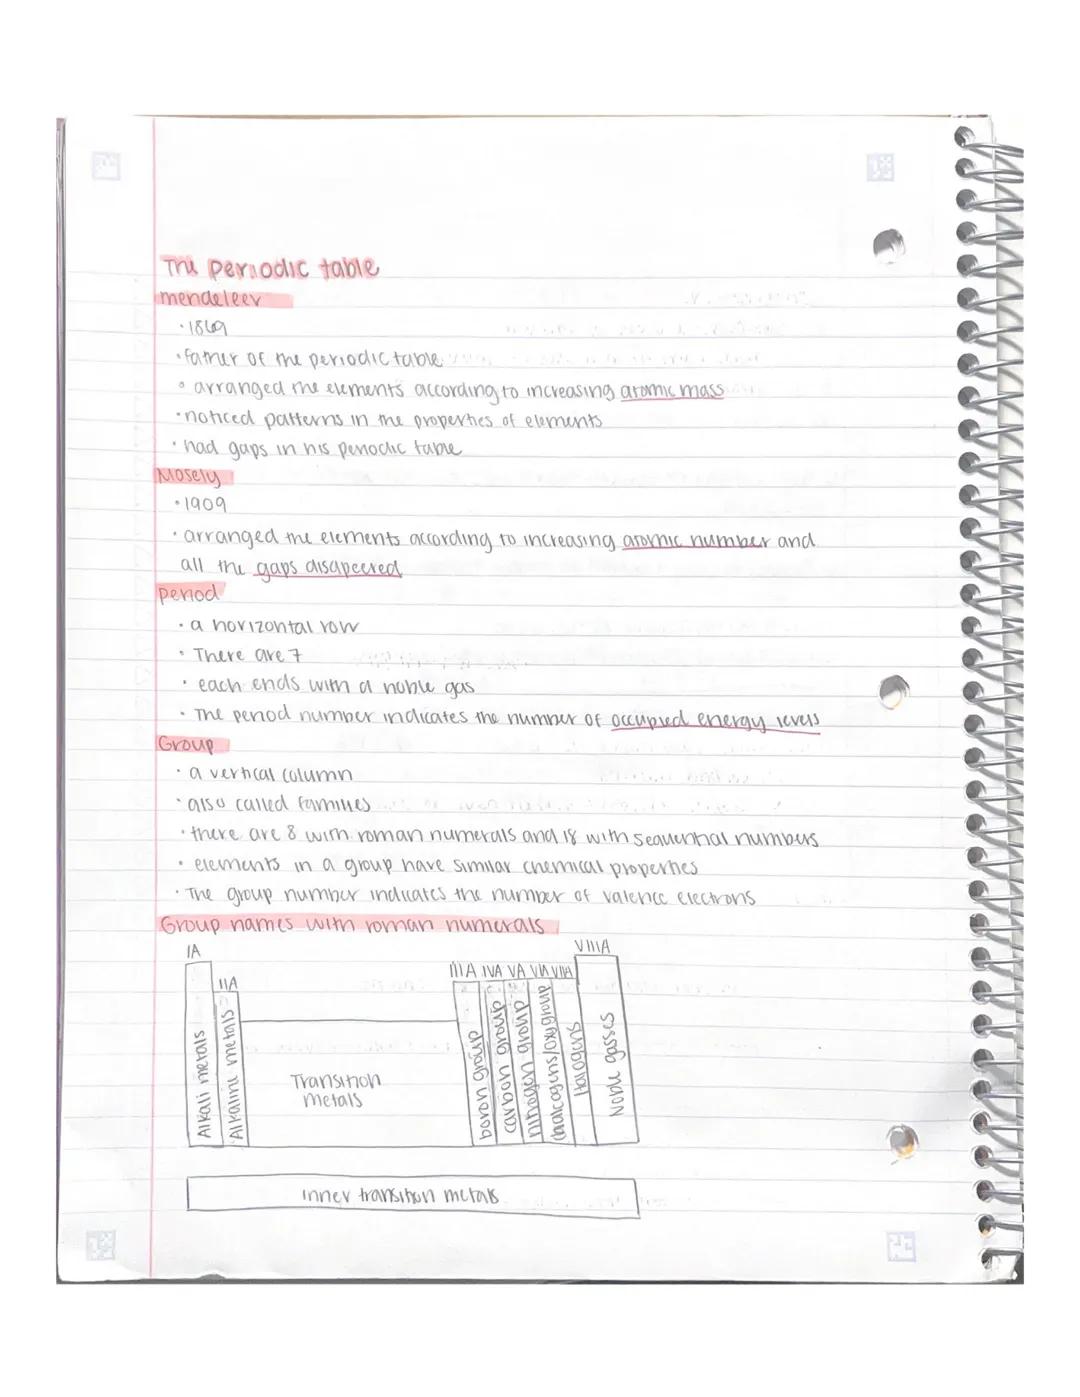 The periodic table
mendeleev
• 1869
• father of the periodic table
• arranged the elements according to increasing atomic mass
• noticed patterns in the properties of elements
• had gaps in his periodic table
Mosely
• 1909
• arranged the elements according to increasing atomic number and
all the gaps disapeered
period
• a horizontal row
• There are 7
• each ends with a noble gas
• The period number indicates the number of occupied energy levels
Group
• a vertical column
• also called families
• there are 8 with roman numerals and 18 with sequential numbers
• elements in a group have similar chemical properties
• The group number indicates the number of valence electrons
Group names with roman numerals
IA
IIA
IIIA IVA VA VIA VIIA
VIIIA
Alkali metals
Alkaline metals
Transition
metals
boron group
carbon group
nitrogen group
chalcogens/oxygroup
Halogens
Noble gasses
inner transition metals